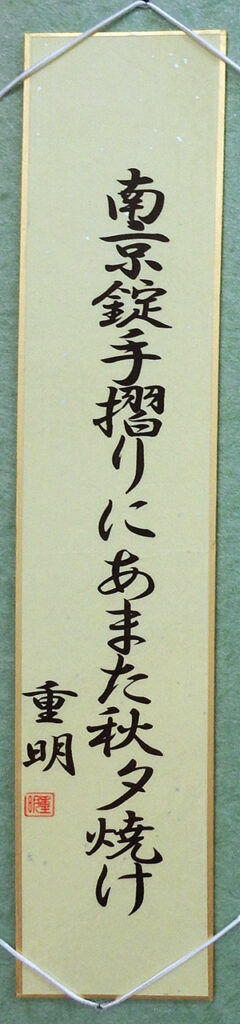 南京錠手摺りにあまた秋夕焼け
重明
重明